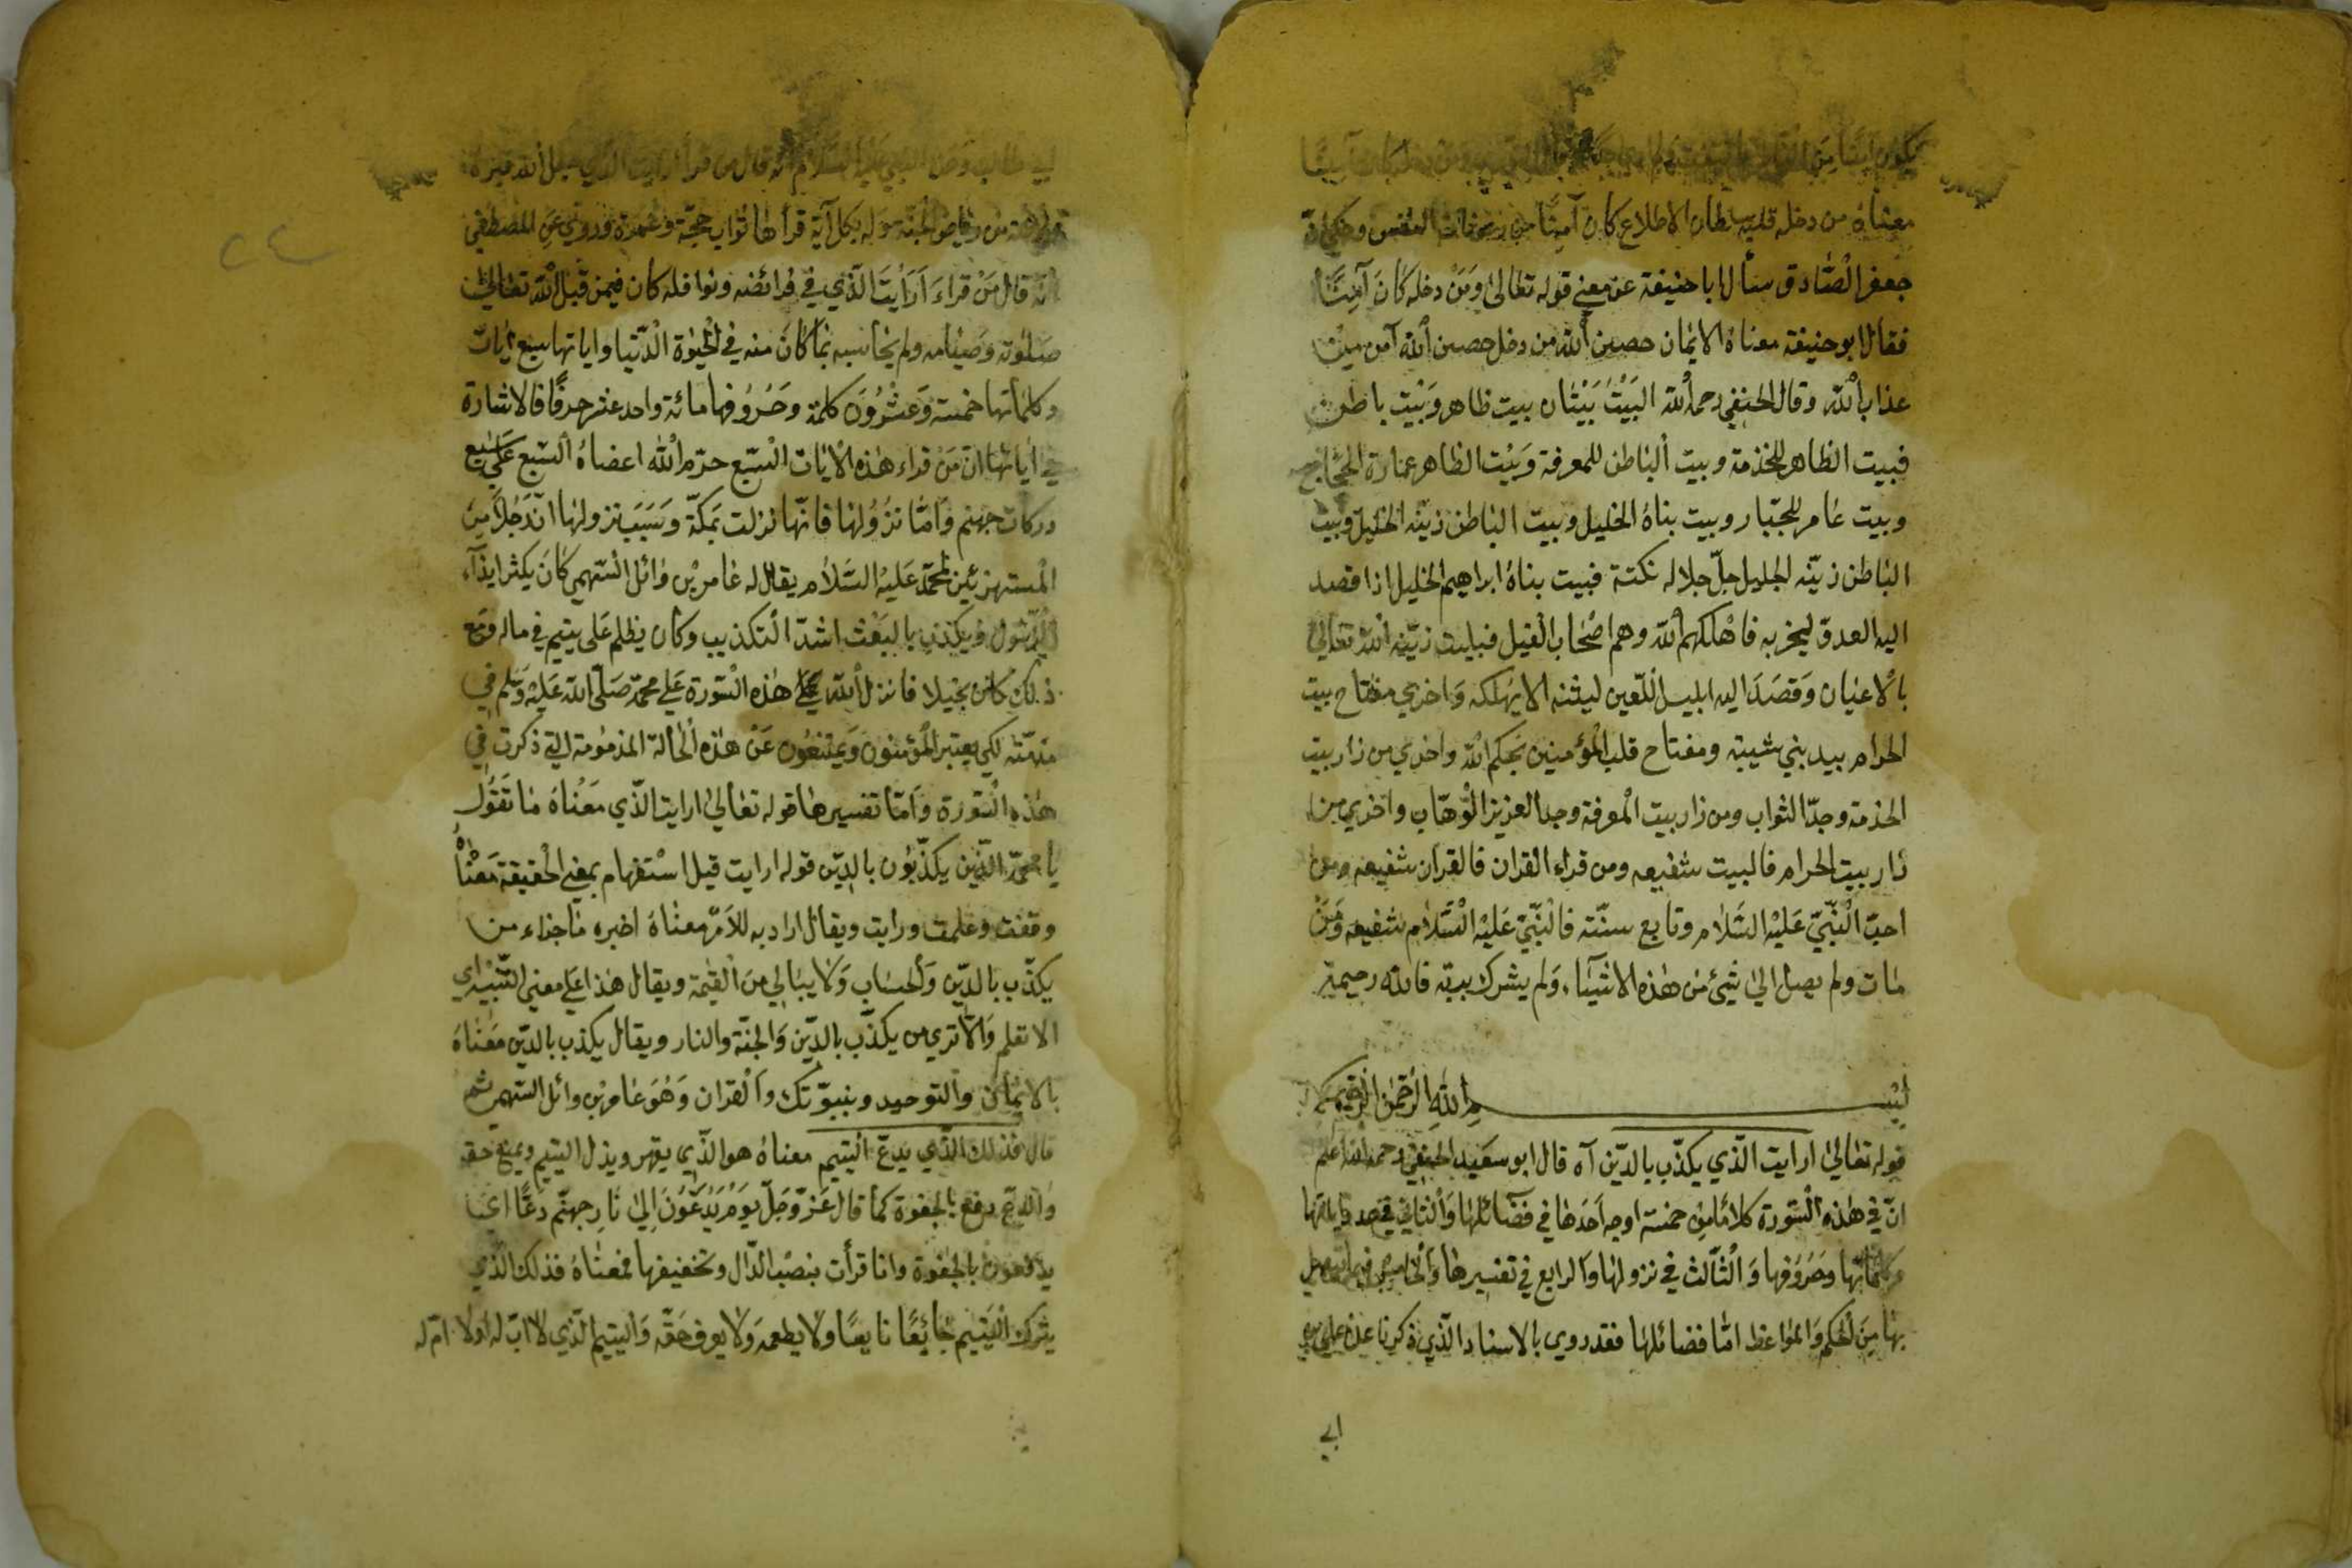 معناهُ من دخله قلبه سلطان الاطلاع كان آمنًا من النفس وحكي انّ
جعفر الصّادق سأل ابا حنيفة عن معنى قوله تعالىٰ وَمَنْ دخله كَانَ آمِنًا
فقال ابو حنيفة معناهُ الايمان حصين اللّه من دخل حصين اللّه آمن من
عذاب اللّه وقال الحنفي رحمه اللّه البَيْتُ بَيْتان بيت ظاهر وَبَيْت باطن
فبيت الظاهر للخذمة وبيت الباطن للمعرفة وَبَيْت الظاهر عمارة الحجّاج
وبيت عامر للجبّار وبيت بناهُ الخليل وبيت الباطن زيّنه الخليل وبيت
الباطن زيّنه الجليل جلّ جلاله نكتة فبيت بناهُ ابراهيم الخليل اذا قصد
اليه العدوّ ليخربه فاهْلكهم اللّه وهم اصْحاب الفيل فبيت زيّنه اللّه تعالىٰ
بالاعيان وَقصَدَ اليه ابليس اللّعين ليثنه الا يهلكه وَاخري مفتاح بيت
الحرام بيد بني شيبة ومفتاح قلب المؤمنين بحكم اللّه واخري من زار بيت
الخذمة وجدّ الثواب ومن زار بيت المعرفة وجد العزيز الوهّاب واخري من
زار بيت الحرام فالبيت شفيعه ومن قراء القران فالقران شفيعه ومن
احبّ النّبيّ عَليْه السَّلام وتابع سنّته فالنّبيّ عَليْه السَّلام شفيعه وَمَنْ
مات ولم يصل الىٰ شئ من هٰذه الاشيَاء وَلم يشرك بربّه فاللّه رحيمه
بسم اللّه الرّحمٰن الرّحيم
قوله تعالىٰ ارايت الّذي يكذّب بالدّين آه قال ابو سَعيد الحنفي رحمه اللّه اعلم
انّ في هٰذه السّورة كلامًا من خمسة اوجه اَحَدها في فضَائلها وَالثاني في عدد اياتها
وكلماتها وحُرُوفها وَالثّالث في نزولها وَالرابع في تفسيرها وَالخامس فيما يتصل
بها مِنَ الحكم وَالمواعظ امّا فضائلها فقد روي بالاسناد الّذي ذكرنا عن علي بن
ابي
ابي طالب وعن النبي عليه السّلام انّه قال من قرأ ارايت الذي جعل اللّه قبره
روضة من رياض الجنّة وَله بكل آية قرأها ثواب حجّة وعُمرة وروي عَن المصطفي
انّه قال مَنْ قراءَ اَرَاَيْتَ الّذي في فرائضه ونوافله كان فيمن قبل اللّه تعالىٰ
صَلوٰته وَصيامه ولم يحاسبه بما كانَ منه في الحيٰوة الدّنيا واياتها سبع ايات
وكلماتها خمسة وَعشْرُوُن كلمة وحُرُوفها مائة واحد عشر حرفًا فالاشارة
في اياتها انّ مَنْ قراء هٰذه الايات السّبع حرّم اللّه اعضاهُ السّبع عَلىٰ سَبع
دركات جهنم وَامّا نزُولها فانّها نزلت بمكّة وسَبَب نزولها انّ رَجُلاً مِنَ
المستهزئين لمحمّد عَليه السَّلام يقال له عامر بْن وٰائل السّهمي كانَ يكثر ايذآء
الرّسول وَيكذب بالبَعْث اشدّ التكذيب وكان يظلم عَلى يتيم في ماله ومَع
ذٰلك كان بخيلا فانزل اللّه هٰذه السّورة عَلي محمّد صَلّى اللّه عَليْه وَسَلم في
مذمّته لكي يعتبر المؤمنون وَيمتنعُون عَنْ هٰذه الحالة المذمُومة التي ذكرت في
هٰذه السّورة وَامّا تفسيرها قوله تعالىٰ ارايت الّذي مَعْناهُ مَا تقوُل
يا محمّد الّذين يكذّبُون بالدّين قوله ارايت قيل اسْتفهام بمعني الحقيقة مَعْناهُ
وقفت وعلمت ورايت ويقال اراد به للاَمر معْناهُ اخبره ما جزاء من
يكذّب بالدّين وَالحسَاب وَلا يبالي منَ القيٰمة ويقال هٰذا عَلي معني التّنبيْه اي
الا تعلم وَالا تري من يكذّب بالدّين وَالجنّة والنار ويقال يكذب بالدّين مَعْناهُ
بالايمان والتوحيد وبنبوّتك وَالقران وَهُوَ عَامر بْن وائل السّهمي ثم
قال فذلك الّذي يدعّ اليتيم معناهُ هو الّذي يقهر ويذل اليتيم ويمنع حقه
والدع يدفع بالجفوة كما قال عَزّ وَجَلّ يَوم يُدَعُّوُنَ الىٰ نٰارِ جهنّم دَعًّا اي
يدفعون بالجفوة وانا قرأت بنصْب الدّال وتخفيفها فمعناهُ فذلك الّذي
يترك اليَتيم جائعًا نايعًا ولا يطعمه وَلا يوف حَقّه وَاليتيم الّذي لا اب له اولا امّ له
٢٤